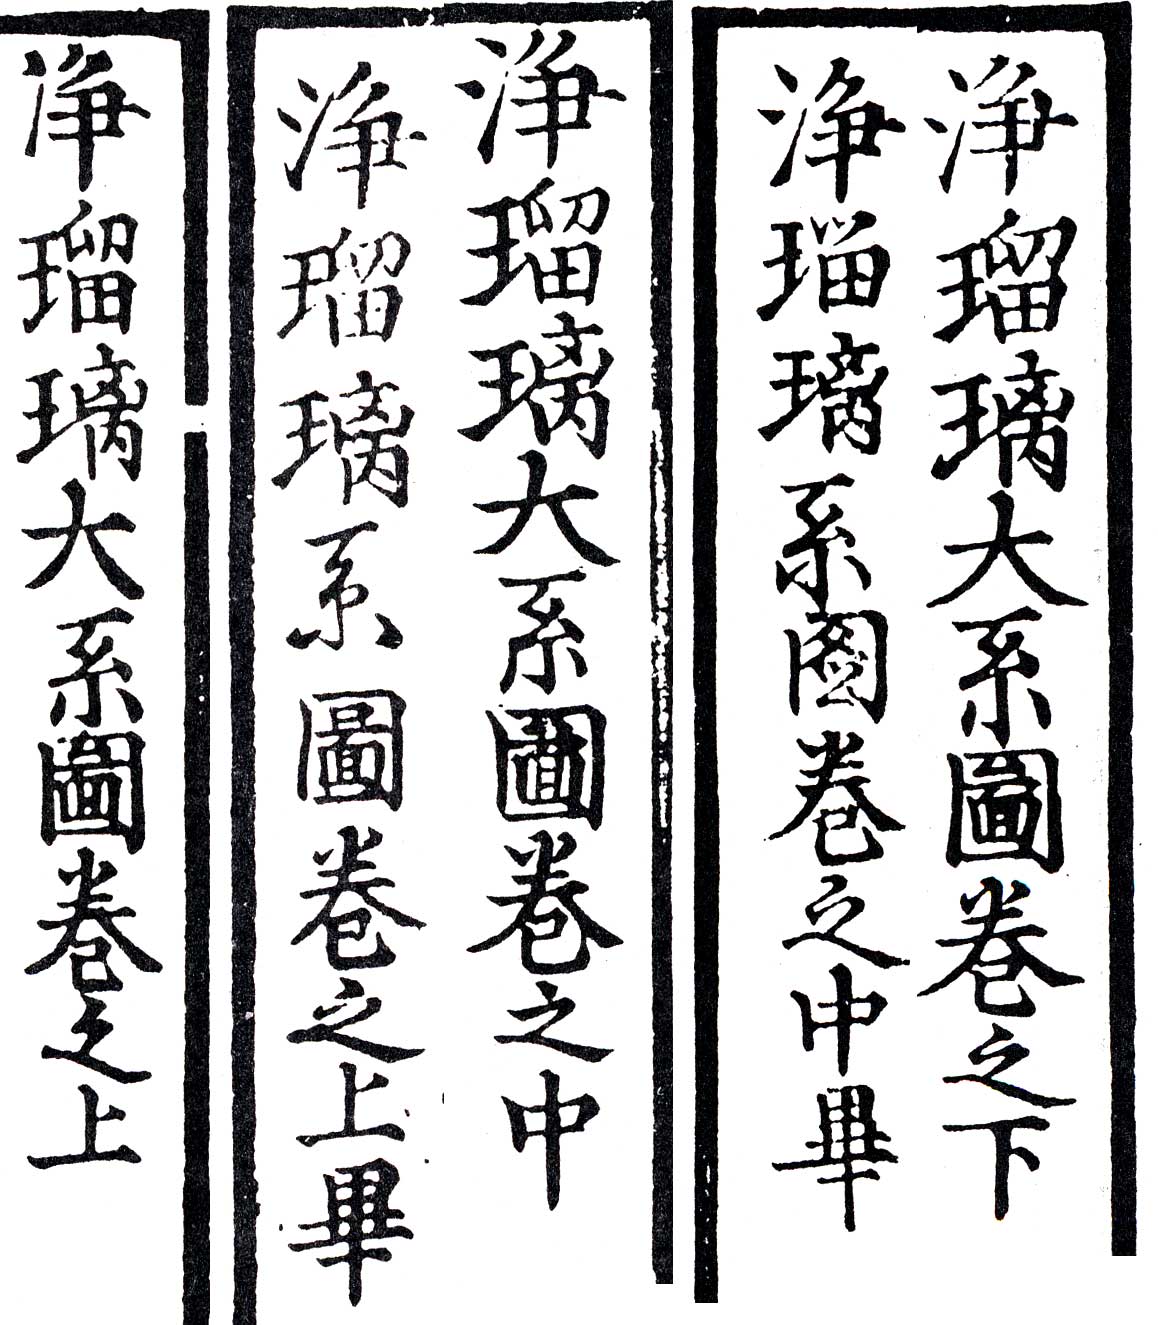 浄瑠璃大系圖巻之下
浄瑠璃系圖巻之中畢
浄瑠璃大系圖巻之中
浄瑠璃系圖巻之上畢
浄瑠璃大系圖巻之上